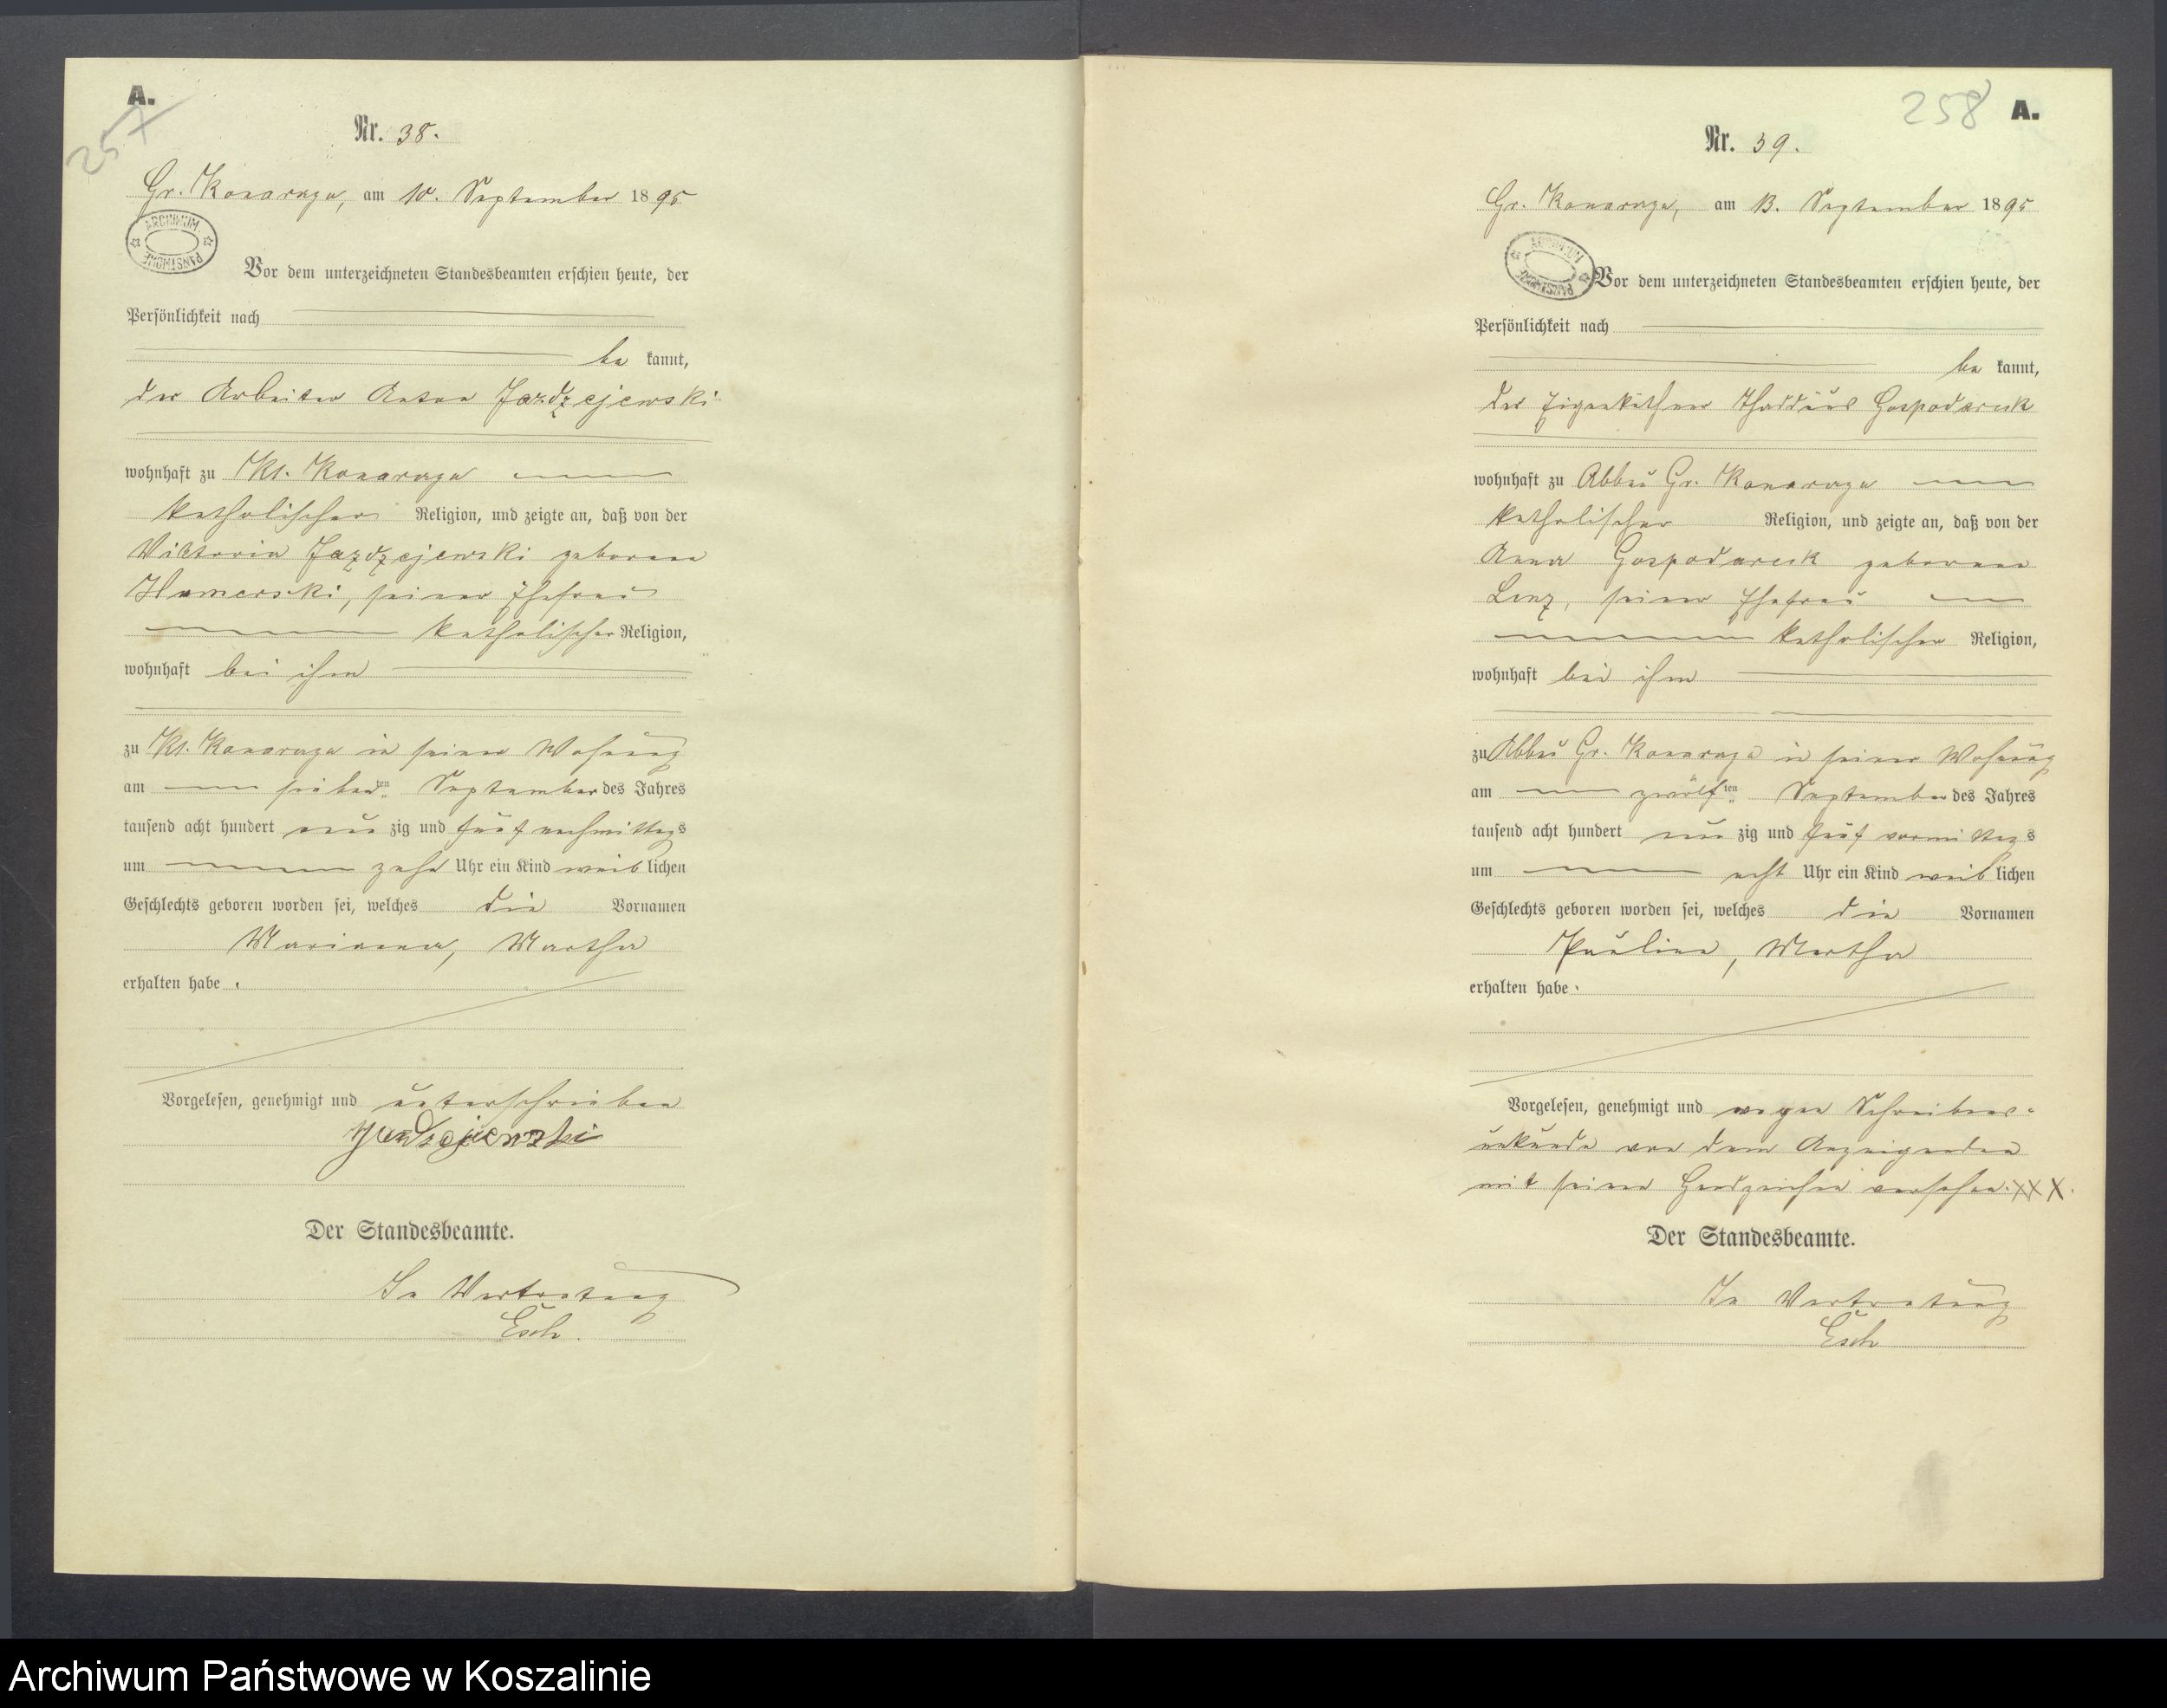 A.
257
Nr. 38.
Gr. Konarczyn, am 10. September 1895
ARCHIWUM PAŃSTWOWE
Vor dem unterzeichneten Standesbeamten erschien heute, der
Persönlichkeit nach
be kannt,
der Arbeiter Anton Jazdzejewski
wohnhaft zu Kl. Konarczyn
katholischer Religion, und zeigte an, daß von der
Viktoria Jazdzejewski geborene
Hamerski, seiner Ehefrau
katholischer Religion,
wohnhaft bei ihm
zu Kl. Konarczyn in seiner Wohnung
am siebenten September des Jahres
tausend acht hundert neun zig und fünf nachmittags
um zehn Uhr ein Kind weib lichen
Geschlechts geboren worden sei, welches die Vornamen
Marianna, Martha
erhalten habe.
Vorgelesen, genehmigt und unterschrieben
Der Standesbeamte.
In Vertretung
Esch.
258
A.
Nr. 39.
Gr. Konarczyn, am 13. September 1895
ARCHIWUM PAŃSTWOWE
Vor dem unterzeichneten Standesbeamten erschien heute, der
Persönlichkeit nach
be kannt,
der Eigenkäthner Thaddäus Gospodarek
wohnhaft zu Abbau Gr. Konarczyn
katholischer Religion, und zeigte an, daß von der
Anna Gospodarek geborene
Lenz, seiner Ehefrau
katholischer Religion,
wohnhaft bei ihm
zu Abbau Gr. Konarczyn in seiner Wohnung
am zwölften September des Jahres
tausend acht hundert neun zig und fünf vormittags
um acht Uhr ein Kind weib lichen
Geschlechts geboren worden sei, welches die Vornamen
Pauline, Martha
erhalten habe.
Vorgelesen, genehmigt und wegen Schreibens-
unkunde von dem Anzeigenden
mit seinen Handzeichen versehen. XXX.
Der Standesbeamte.
In Vertretung
Esch
Archiwum Państwowe w Koszalinie